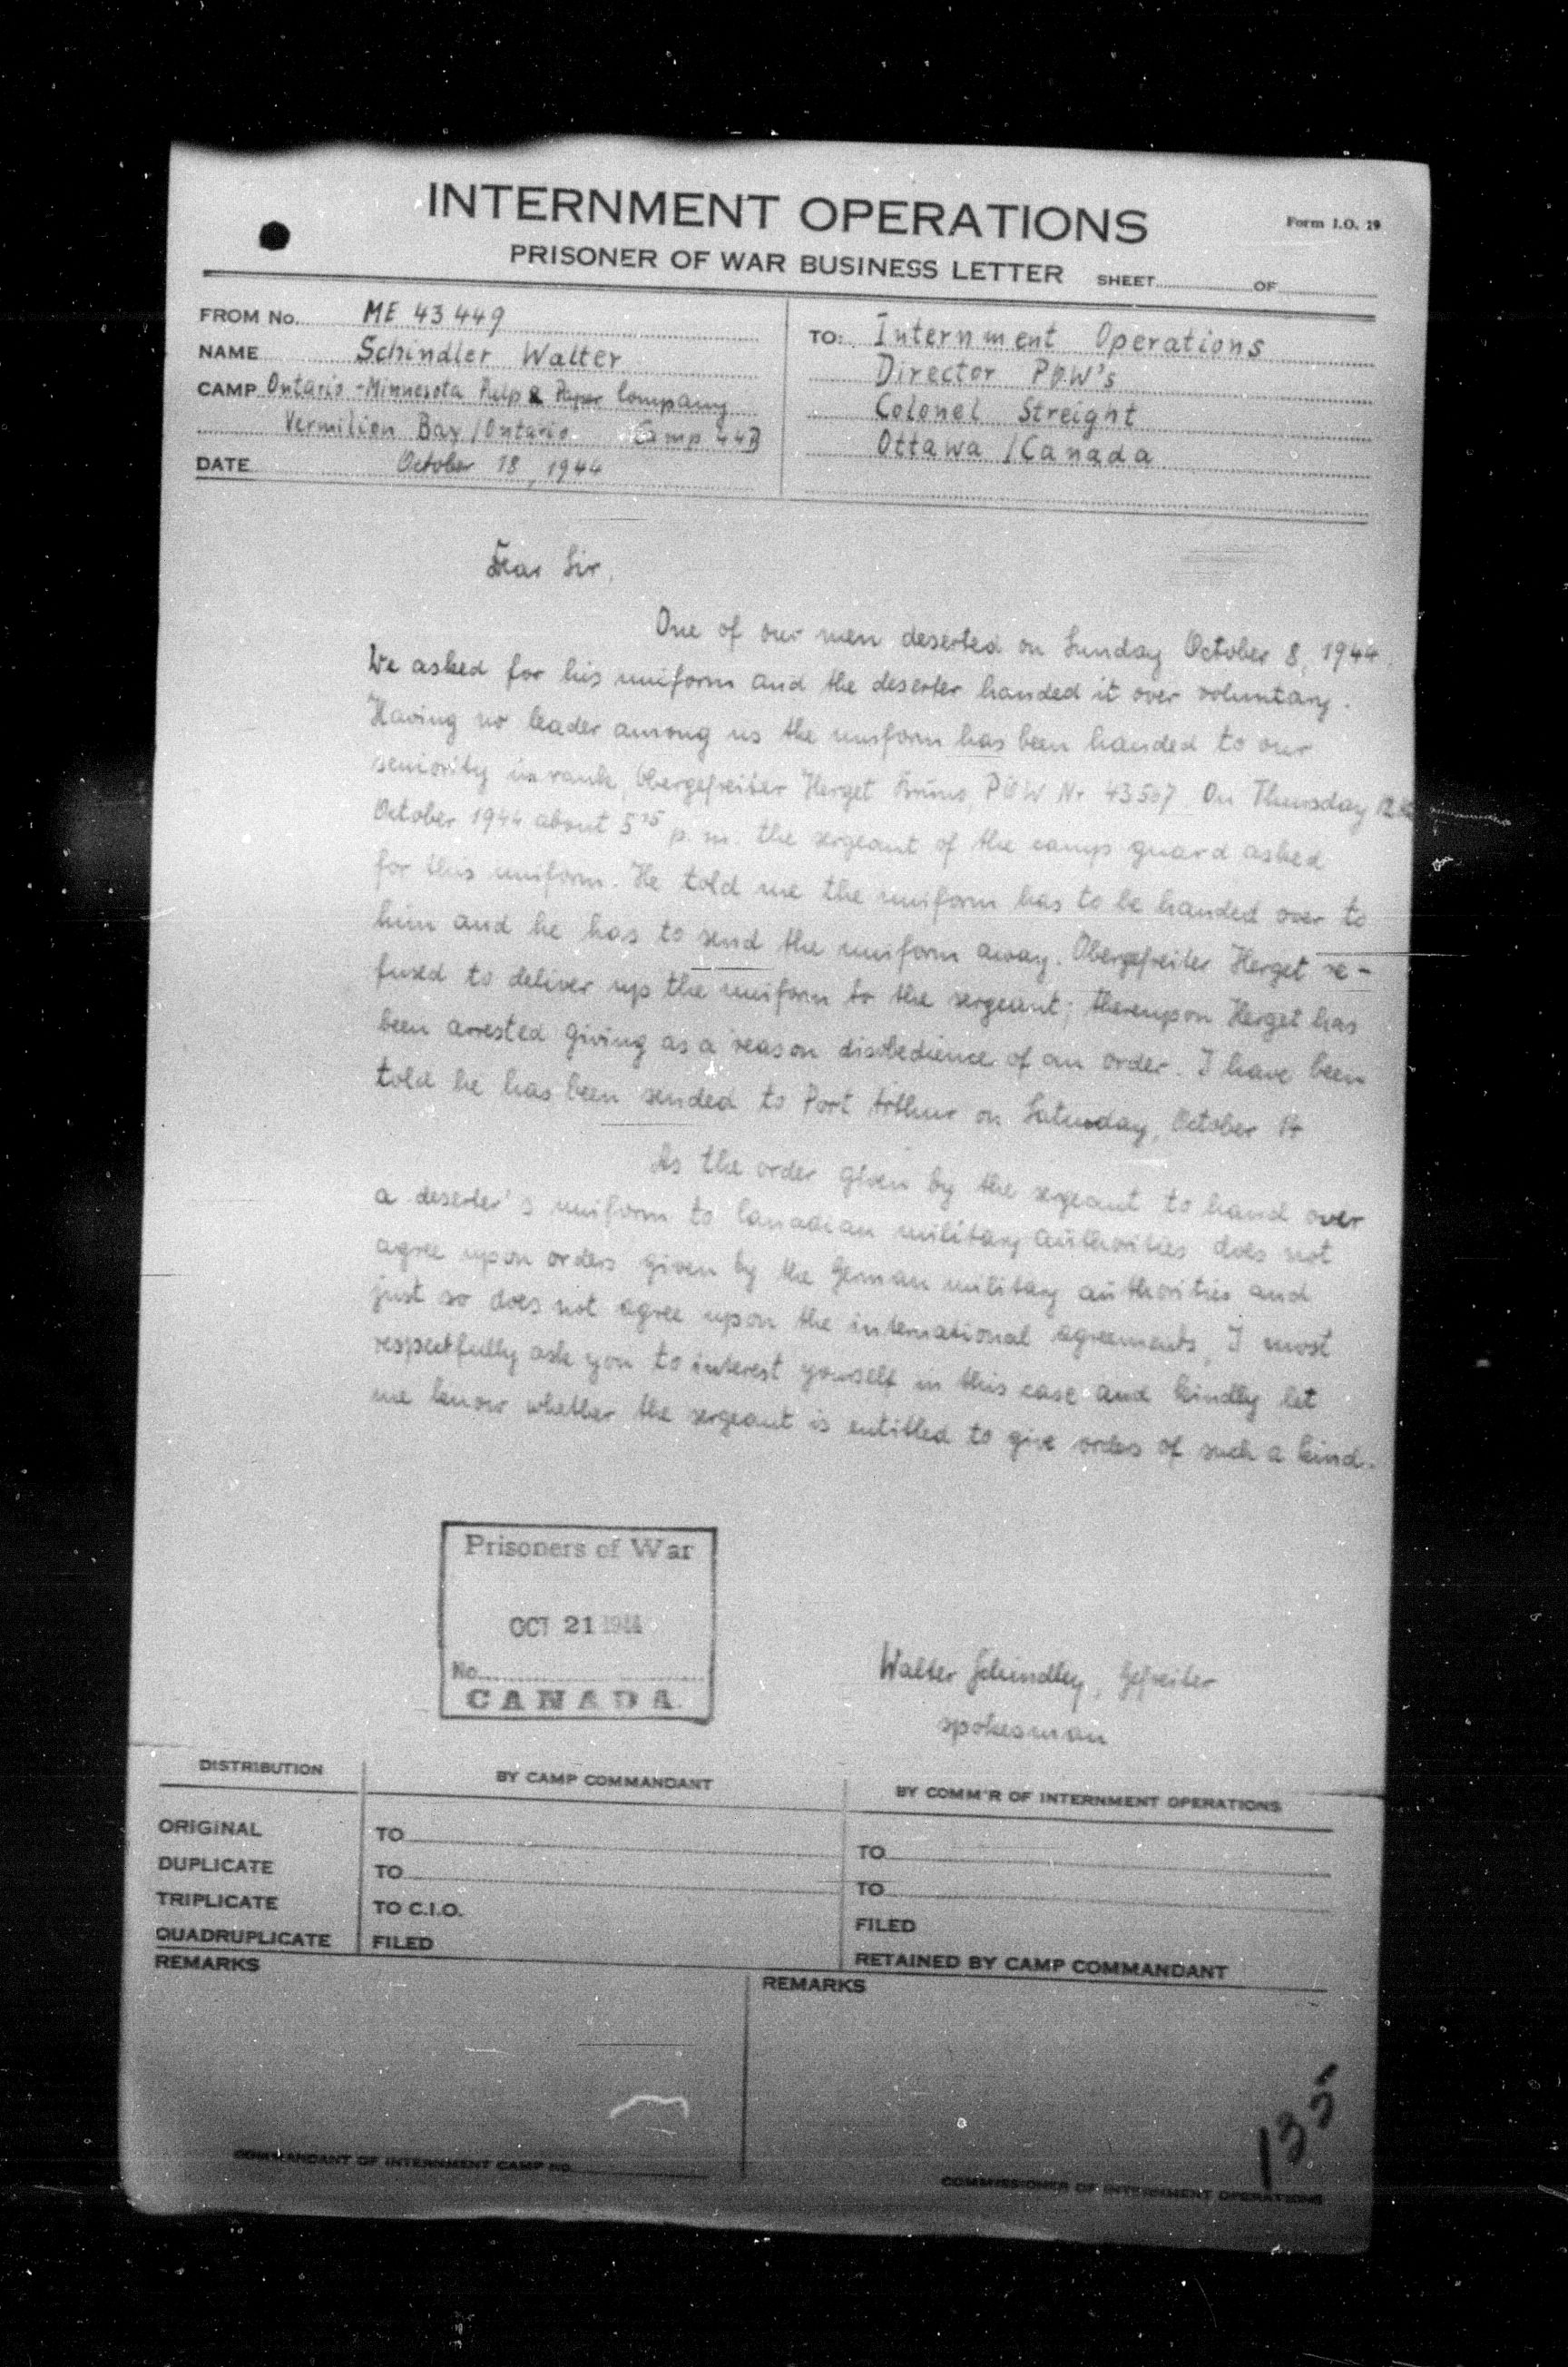 INTERNMENT OPERATIONS
Form I.O. 19
PRISONER OF WAR BUSINESS LETTER SHEET OF
FROM No. ME 43449
NAME Schindler Walter
CAMP Ontario-Minnesota Pulp & Paper Company
Vermilion Bay/Ontario Camp 443
DATE October 18, 1944
TO: Internment Operations
Director POW's
Colonel Streight
Ottawa /Canada
Dear Sir,
One of our men deserted on Sunday October 8, 1944.
We asked for his uniform and the deserter handed it over voluntary.
Having no leader among us the uniform has been handed to our
seniority in rank, Obergefreiter Herget Bruno, POW Nr 43507. On Thursday 12th
October 1944 about 5 15 p.m. the sergeant of the camp guard asked
for this uniform. He told me the uniform has to be handed over to
him and he has to send the uniform away. Obergefreiter Herget re-
fused to deliver up the uniform to the sergeant; thereupon Herget has
been arrested giving as a reason disobedience of an order. I have been
told he has been sended to Port Arthur on Saturday, October 14
As the order given by the sergeant to hand over
a deserter's uniform to Canadian military authorities does not
agree upon orders given by the German military authorities and
just so does not agree upon the international agreements, I most
respectfully ask you to interest yourself in this case and kindly let
me know whether the sergeant is entitled to give orders of such a kind.
Prisoners of War
OCT 21 1944
No.
CANADA
Walter Schindler, Gefreiter
spokesman
DISTRIBUTION BY CAMP COMMANDANT BY COMM'R OF INTERNMENT OPERATIONS
ORIGINAL TO TO
DUPLICATE TO TO
TRIPLICATE TO C.I.O. FILED
QUADRUPLICATE FILED RETAINED BY CAMP COMMANDANT
REMARKS REMARKS
135
COMMANDANT OF INTERNMENT CAMP NO.
COMMISSIONER OF INTERNMENT OPERATIONS